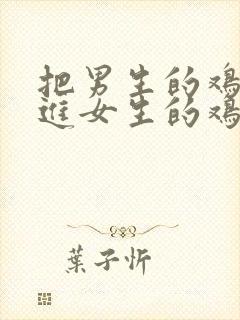 把男生的鸡
进女生的鸡
葉子忻